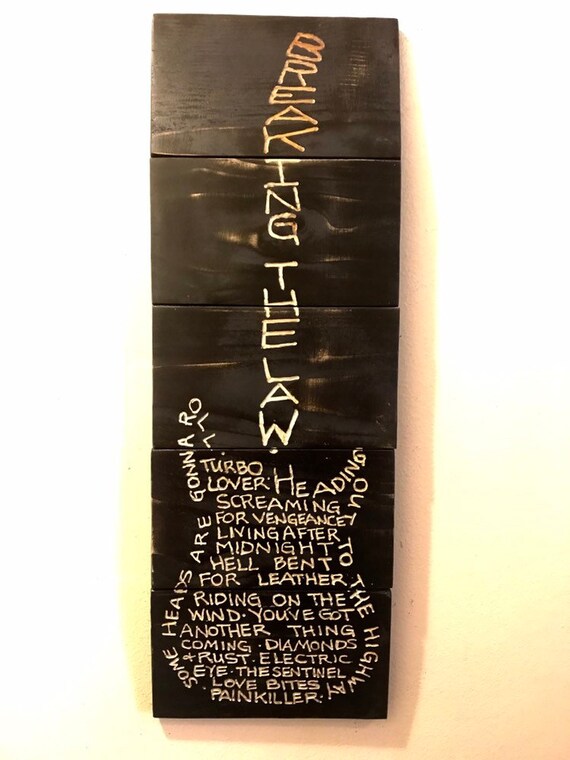 BREAKING THE LAW.
SOME HEADS ARE GONNA ROLL
TURBO
LOVER. HEADING OUT TO THE HIGHWAY
SCREAMING
FOR VENGEANCE
LIVING AFTER
MIDNIGHT
HELL BENT
FOR LEATHER.
RIDING ON THE
WIND. YOU'VE GOT
ANOTHER THING
COMING. DIAMONDS
& RUST. ELECTRIC
EYE. THE SENTINEL
LOVE BITES.
PAINKILLER.